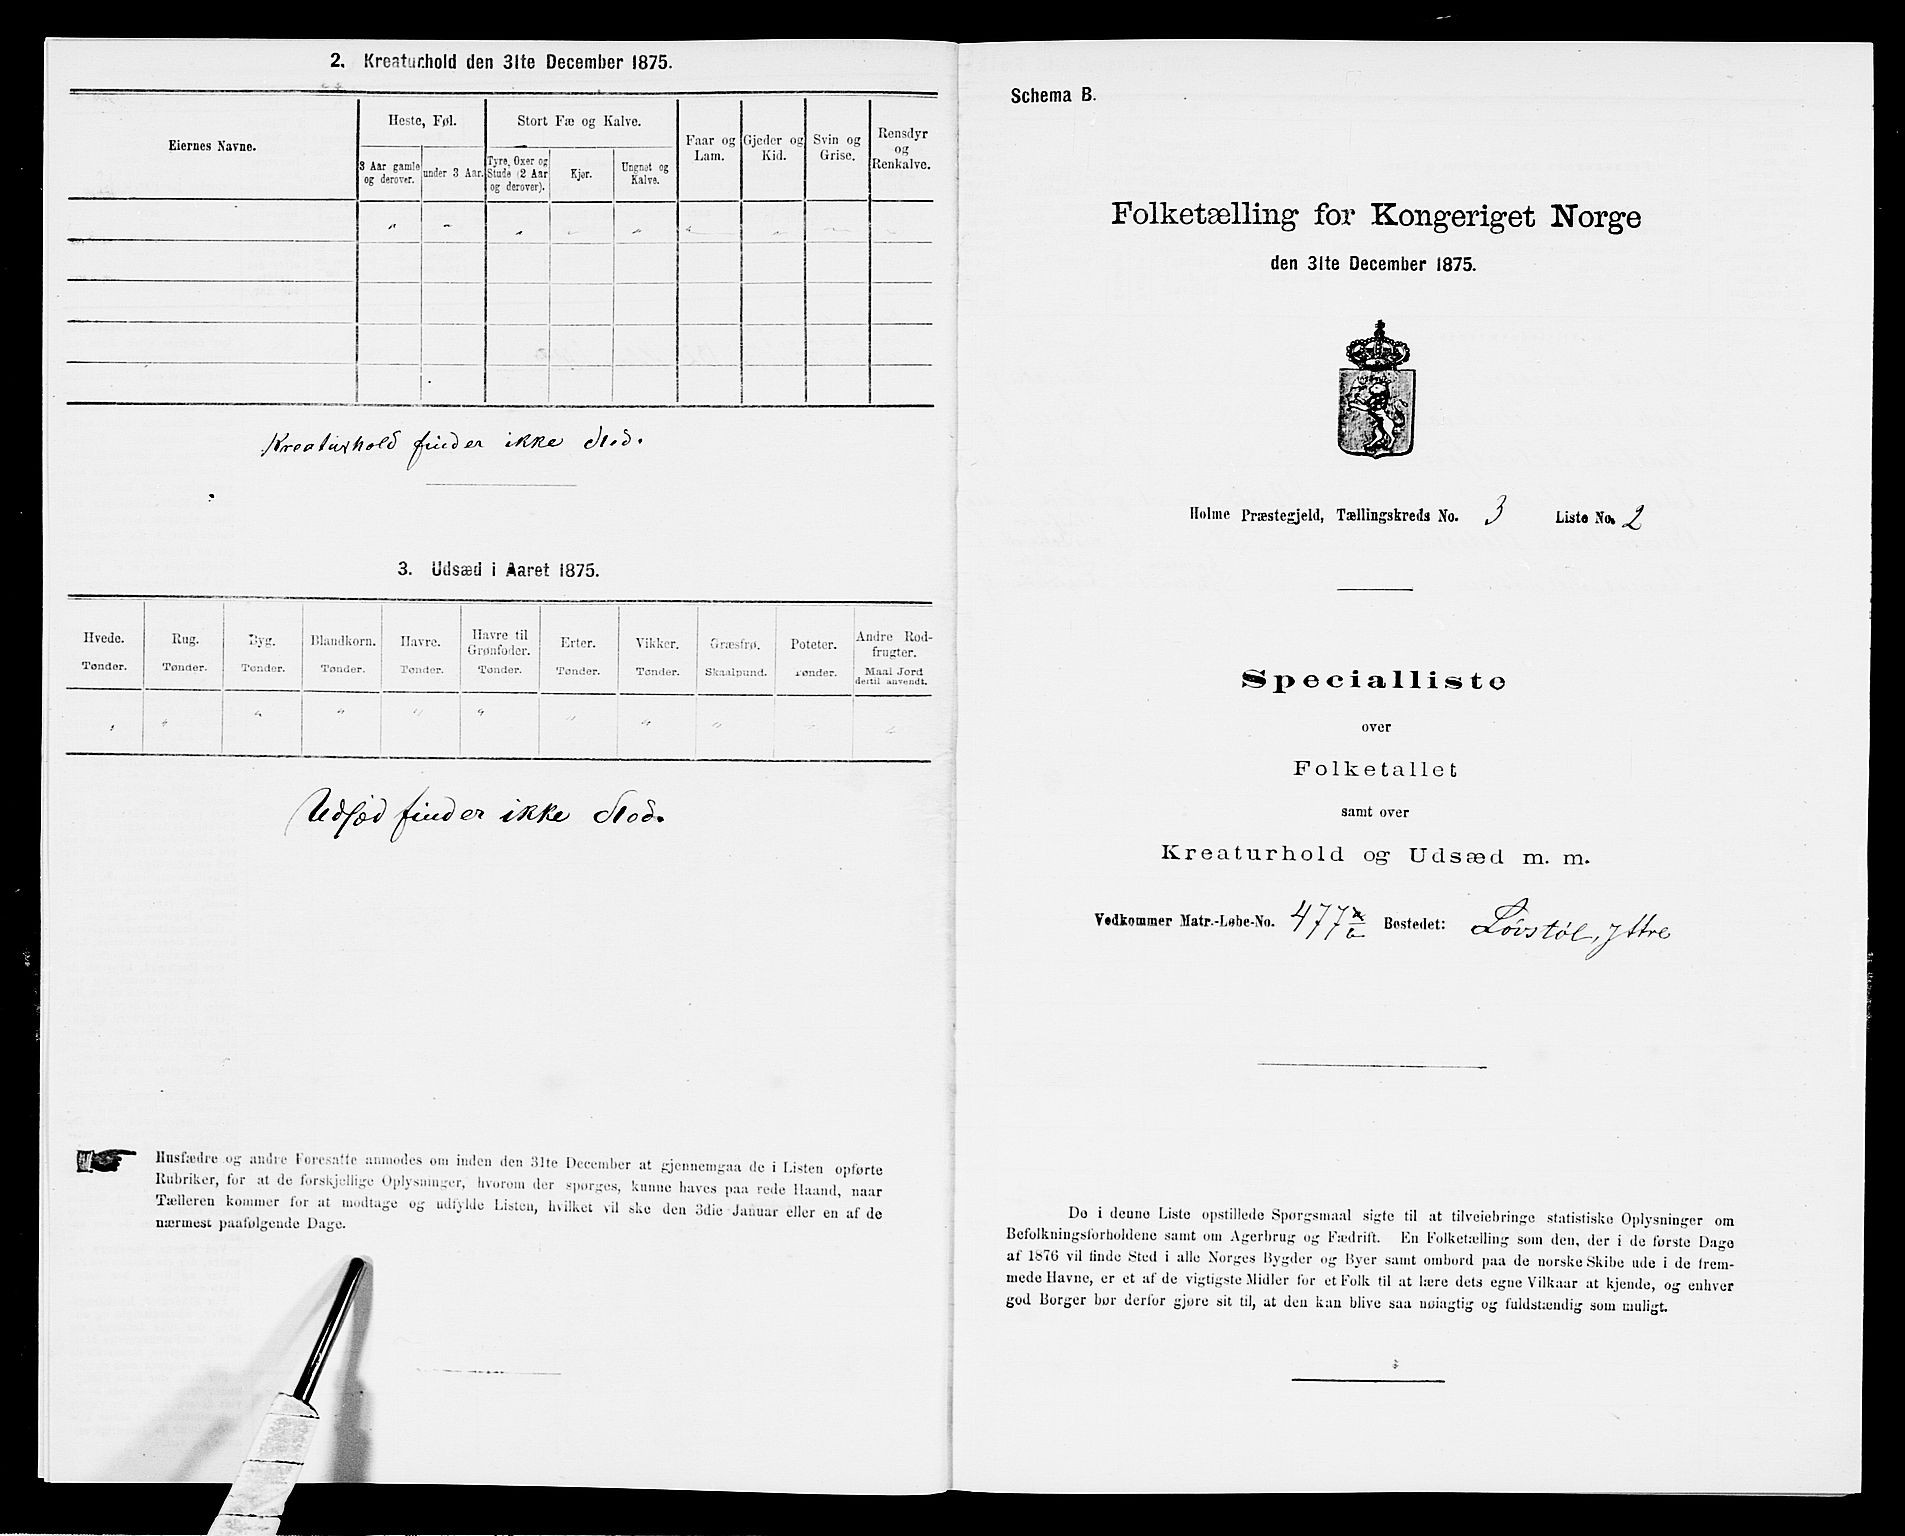 2. Kreaturhold den 31te December 1875.
Eiernes Navne.
Heste, Føl.
3 Aar gamle
og derover.
under 3 Aar.
Stort Fæ og Kalve.
Tyre, Oxer og
Stude (2 Aar
og derover).
Kjør.
Ungnøt og
Kalve.
Faar og
Lam.
Gjeder og
Kid.
Svin og
Grise.
Rensdyr
og
Renkalve.
Kreaturhold finder ikke Sted.
3. Udsæd i Aaret 1875.
Hvede.
Tønder.
Rug.
Tønder.
Byg.
Tønder.
Blandkorn.
Tønder.
Havre.
Tønder.
Havre til
Grønfoder.
Tønder.
Erter.
Tønder.
Vikker.
Tønder.
Græsfrø.
Skaalpund.
Poteter.
Tønder.
Andre Rod-
frugter.
Maal Jord
dertil anvendt.
Udsæd finder ikke Sted.
Husfædre og andre Foresatte anmodes om inden den 31te December at gjennemgaa de i Listen opførte
Rubriker, for at de forskjellige Oplysninger, hvorom der spørges, kunne haves paa rede Haand, naar
Tælleren kommer for at modtage og udfylde Listen, hvilket vil ske den 3die Januar eller en af de
nærmest paafølgende Dage.
Schema B.
Folketælling for Kongeriget Norge
den 31te December 1875.
Holme Præstegjeld, Tællingskreds No. 3 Liste No. 2
Specialliste
over
Folketallet
samt over
Kreaturhold og Udsæd m. m.
Vedkommer Matr.-Løbe-No. 477 Bostedet: Lövstöl, Ytre
De i denne Liste opstillede Spørgsmaal sigte til at tilveiebringe statistiske Oplysninger om
Befolkningsforholdene samt om Agerbrug og Fædrift. En Folketælling som den, der i de første Dage
af 1876 vil finde Sted i alle Norges Bygder og Byer samt ombord paa de norske Skibe ude i de frem-
mede Havne, er et af de vigtigste Midler for et Folk til at lære dets egne Vilkaar at kjende, og enhver
god Borger bør derfor gjøre sit til, at den kan blive saa nøiagtig og fuldstændig som muligt.